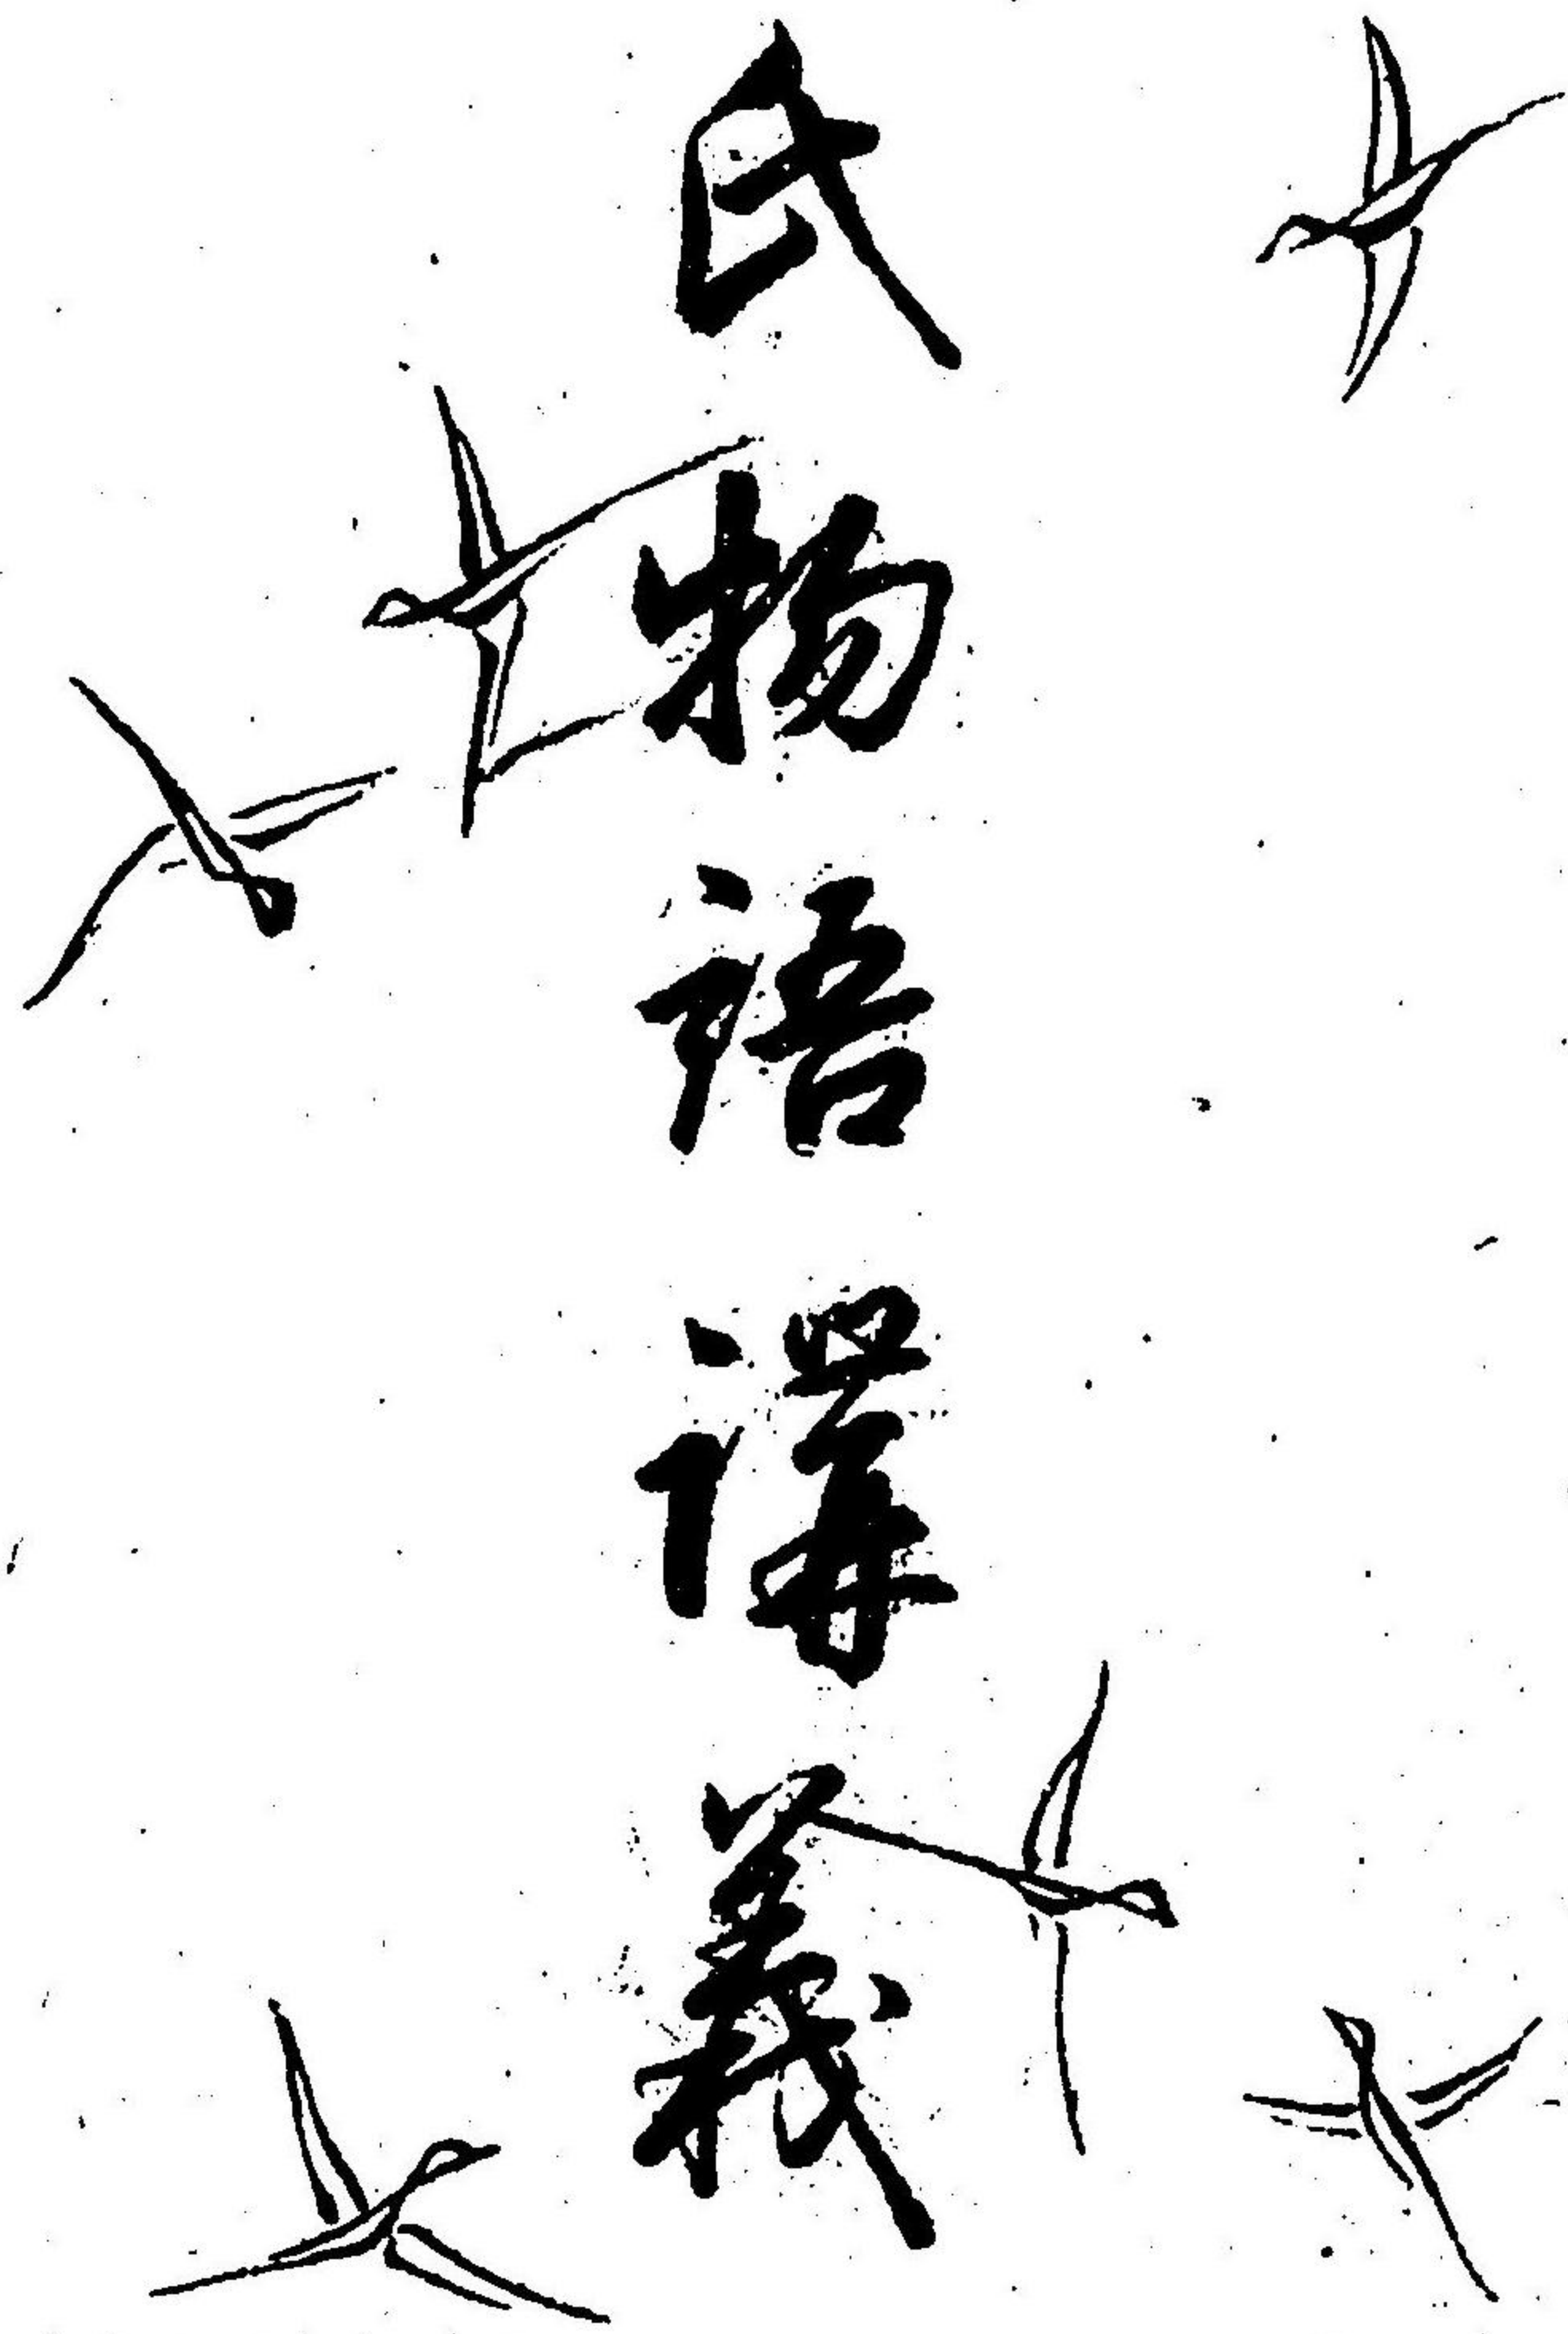 氏物語講義